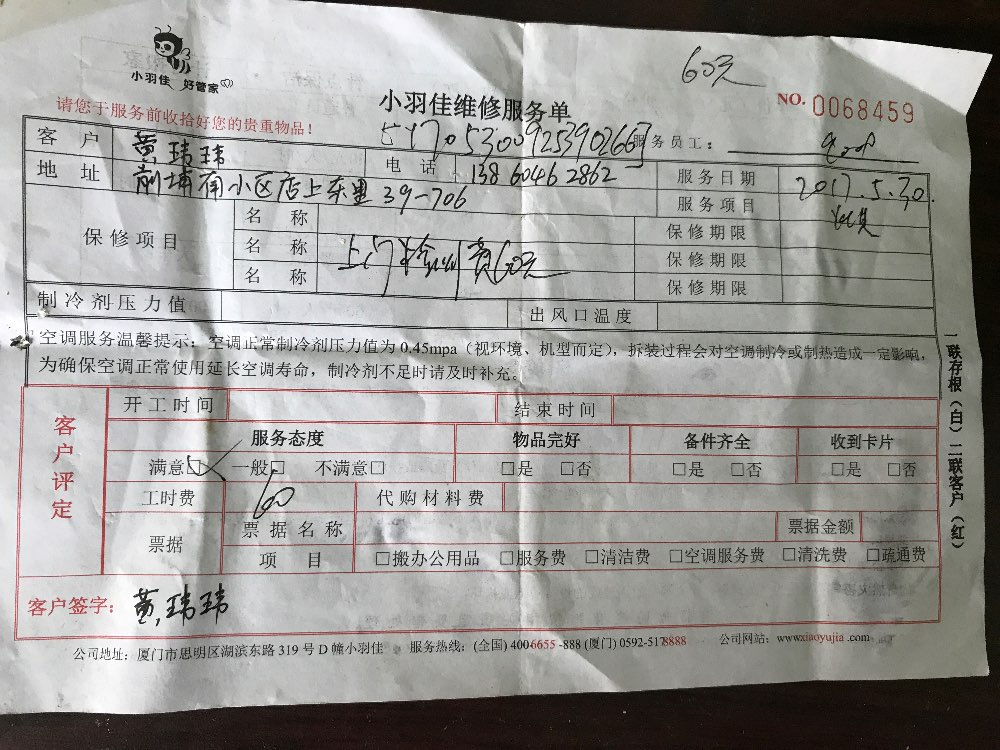 小羽佳 好管家
60元
小羽佳维修服务单
NO. 0068459
请您于服务前收拾好您的贵重物品！
服务员工：
客户 黄玮玮 电话 13860462862 服务日期 2017.5.30.
地址 前埔南小区店上东里39-706 服务项目
保修项目 名称 保修期限
名称 上门检测费60元 保修期限
名称 保修期限
制冷剂压力值 出风口温度
空调服务温馨提示：空调正常制冷剂压力值为0.45mpa（视环境、机型而定），拆装过程会对空调制冷或制热造成一定影响，
为确保空调正常使用延长空调寿命，制冷剂不足时请及时补充。
客户评定
开工时间 结束时间
服务态度 物品完好 备件齐全 收到卡片
满意□ 一般□ 不满意□ □是 □否 □是 □否 □是 □否
工时费 60 代购材料费
票据 票据名称 票据金额
项目 □搬办公用品 □服务费 □清洁费 □空调服务费 □清洗费 □疏通费
客户签字：黄玮玮
公司地址：厦门市思明区湖滨东路319号D幢小羽佳 服务热线：(全国) 4006655-888 (厦门) 0592-5178888 公司网站：www.xiaoyujia.com
一联存根（白）二联客户（红）